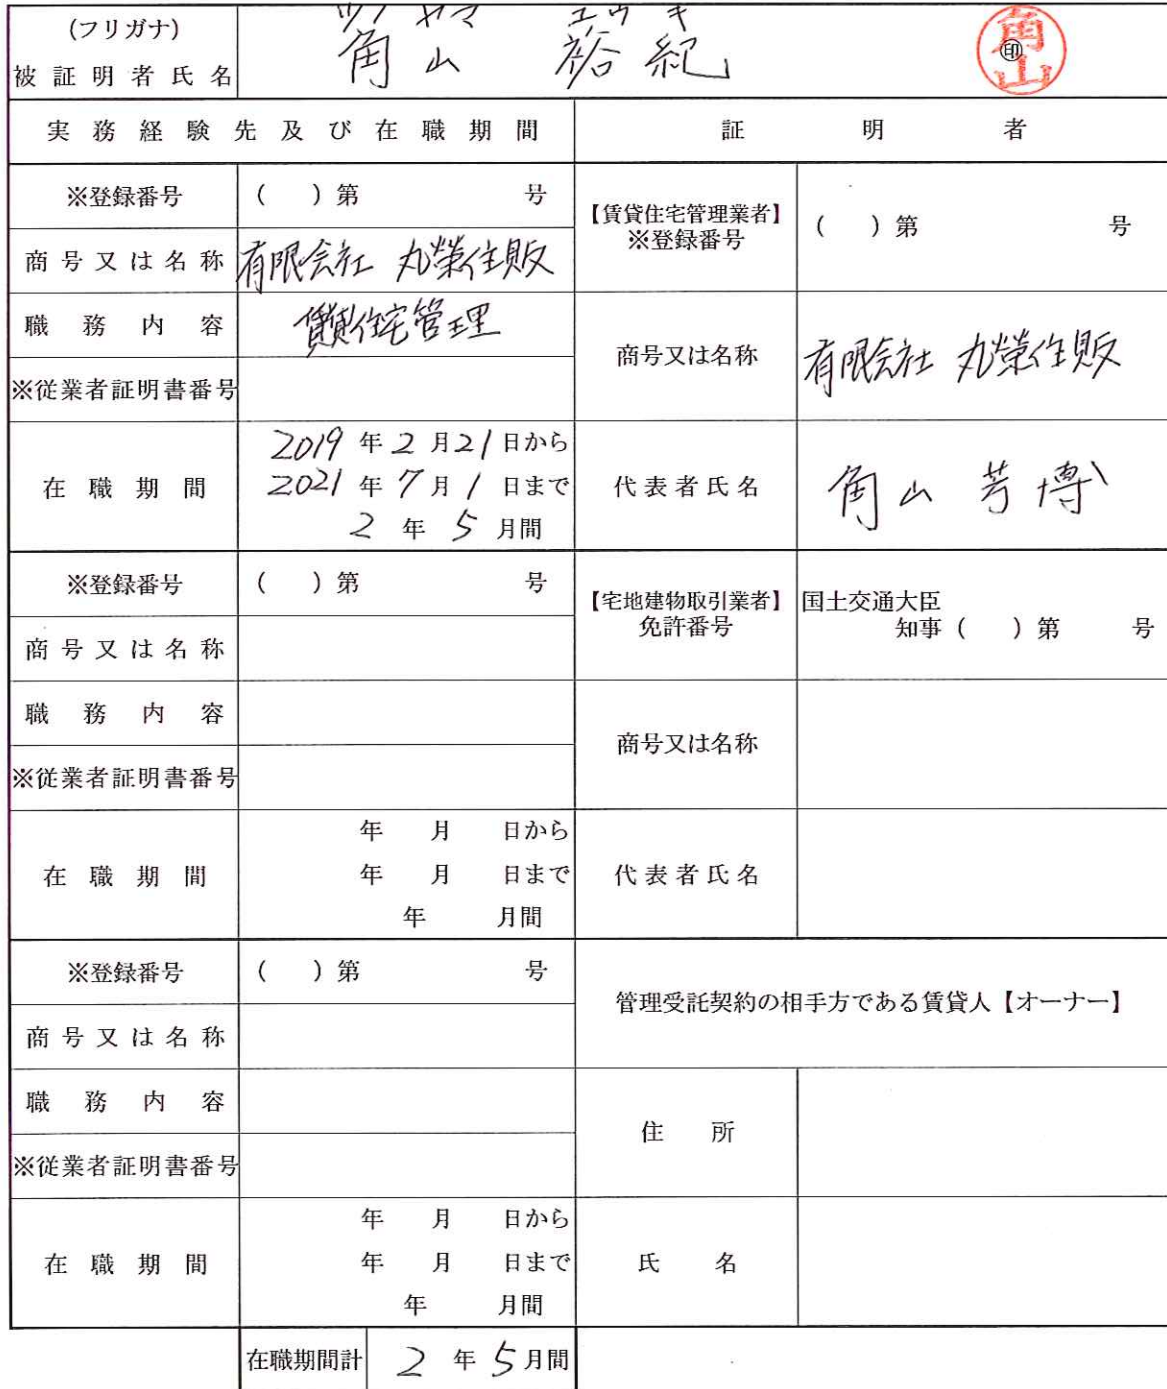 (フリガナ) ツノ ヤマ ユウ キ
被証明者氏名 角山 裕紀 ㊞ 角山
実務経験先及び在職期間 証明者
※登録番号 ( )第 号 【賃貸住宅管理業者】 ※登録番号 ( )第 号
商号又は名称 有限会社 丸榮住販
職務内容 賃貸住宅管理 商号又は名称 有限会社 丸榮住販
※従業者証明書番号
在職期間 2019年2月21日から
2021年7月1日まで 代表者氏名 角山 芳博
2年5月間
※登録番号 ( )第 号 【宅地建物取引業者】 免許番号 国土交通大臣
知事( )第 号
商号又は名称
職務内容 商号又は名称
※従業者証明書番号
年 月 日から
在職期間 年 月 日まで 代表者氏名
年 月間
※登録番号 ( )第 号 管理受託契約の相手方である賃貸人【オーナー】
商号又は名称
職務内容 住所
※従業者証明書番号
年 月 日から
在職期間 年 月 日まで 氏名
年 月間
在職期間計 2年5月間